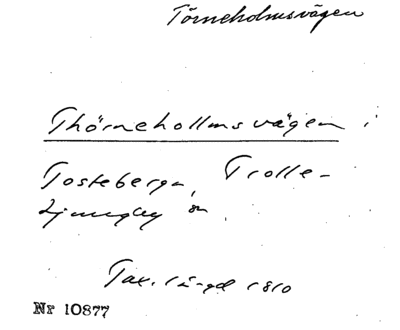 Törneholmsvägen
Thörnehollmsvägen i
Tosteberga, Trolle-
Ljungby sn.
Tax. längd 1810
Nr 10877